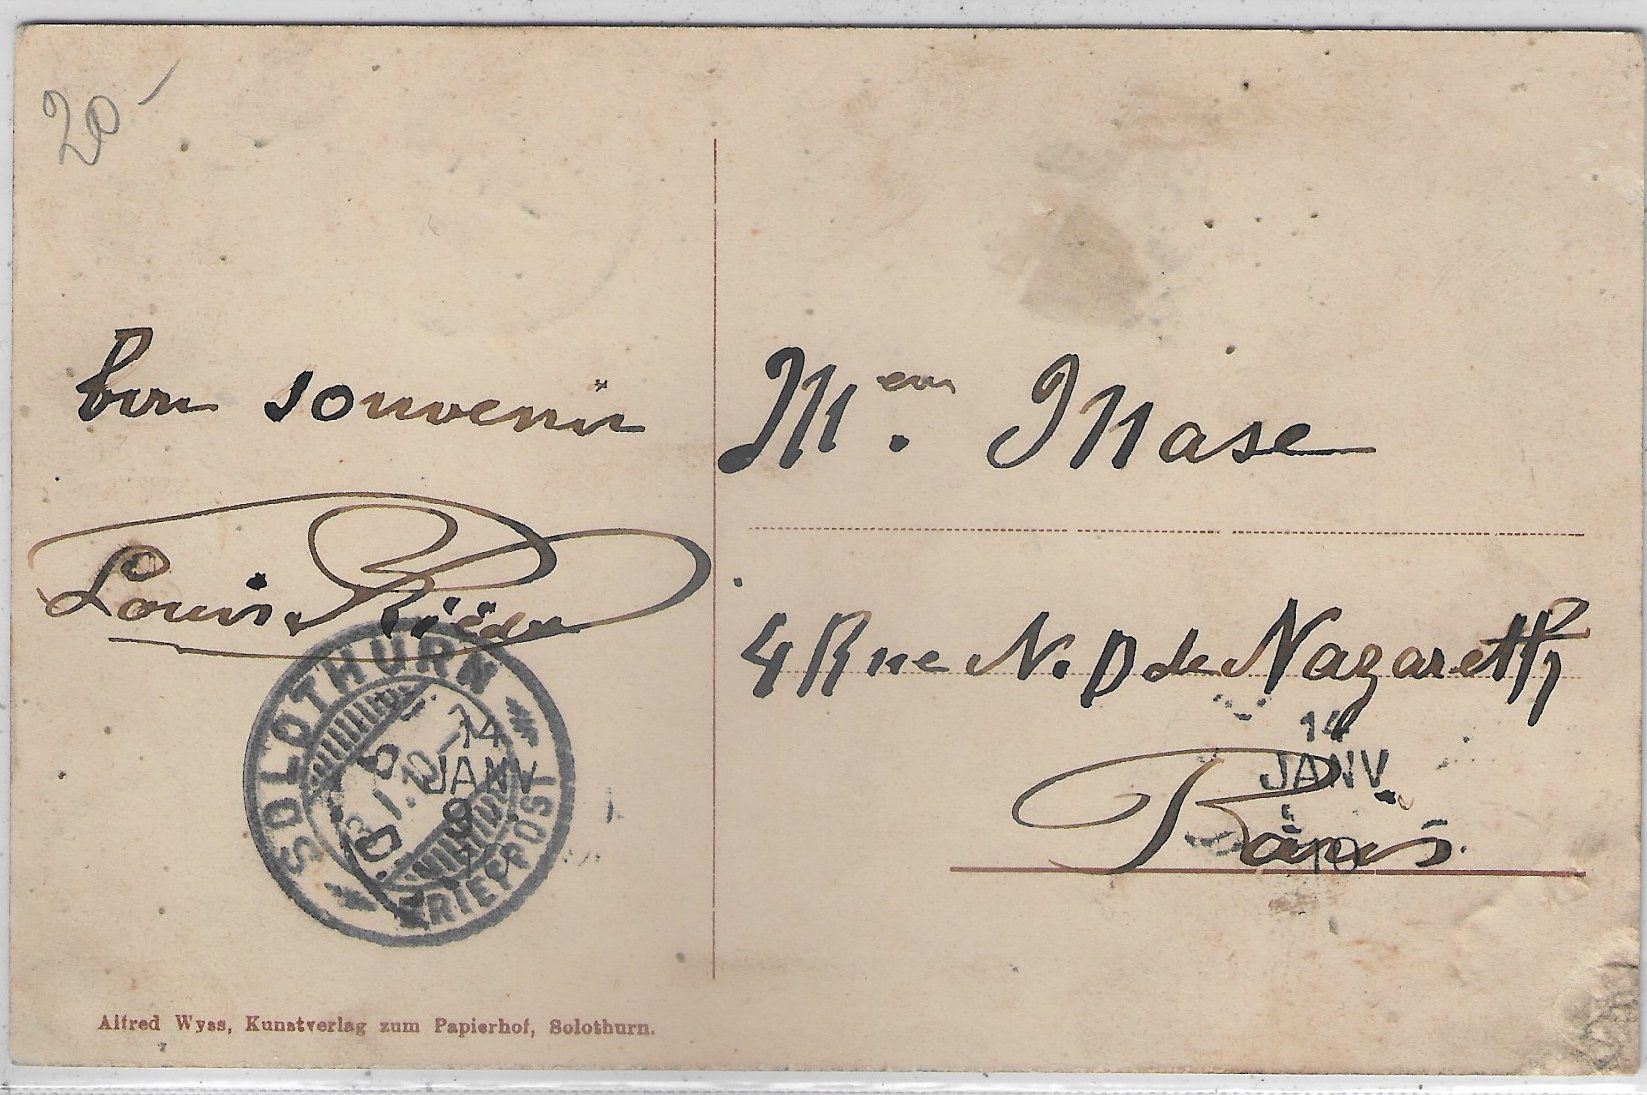 20.-
bon souvenir
Louis
M. Mase
4 Rue N. D de Nazareth
Paris
SOLOTHURN
BRIEFPOST
14
JANV
14
JANV
10
Alfred Wyss, Kunstverlag zum Papierhof, Solothurn.